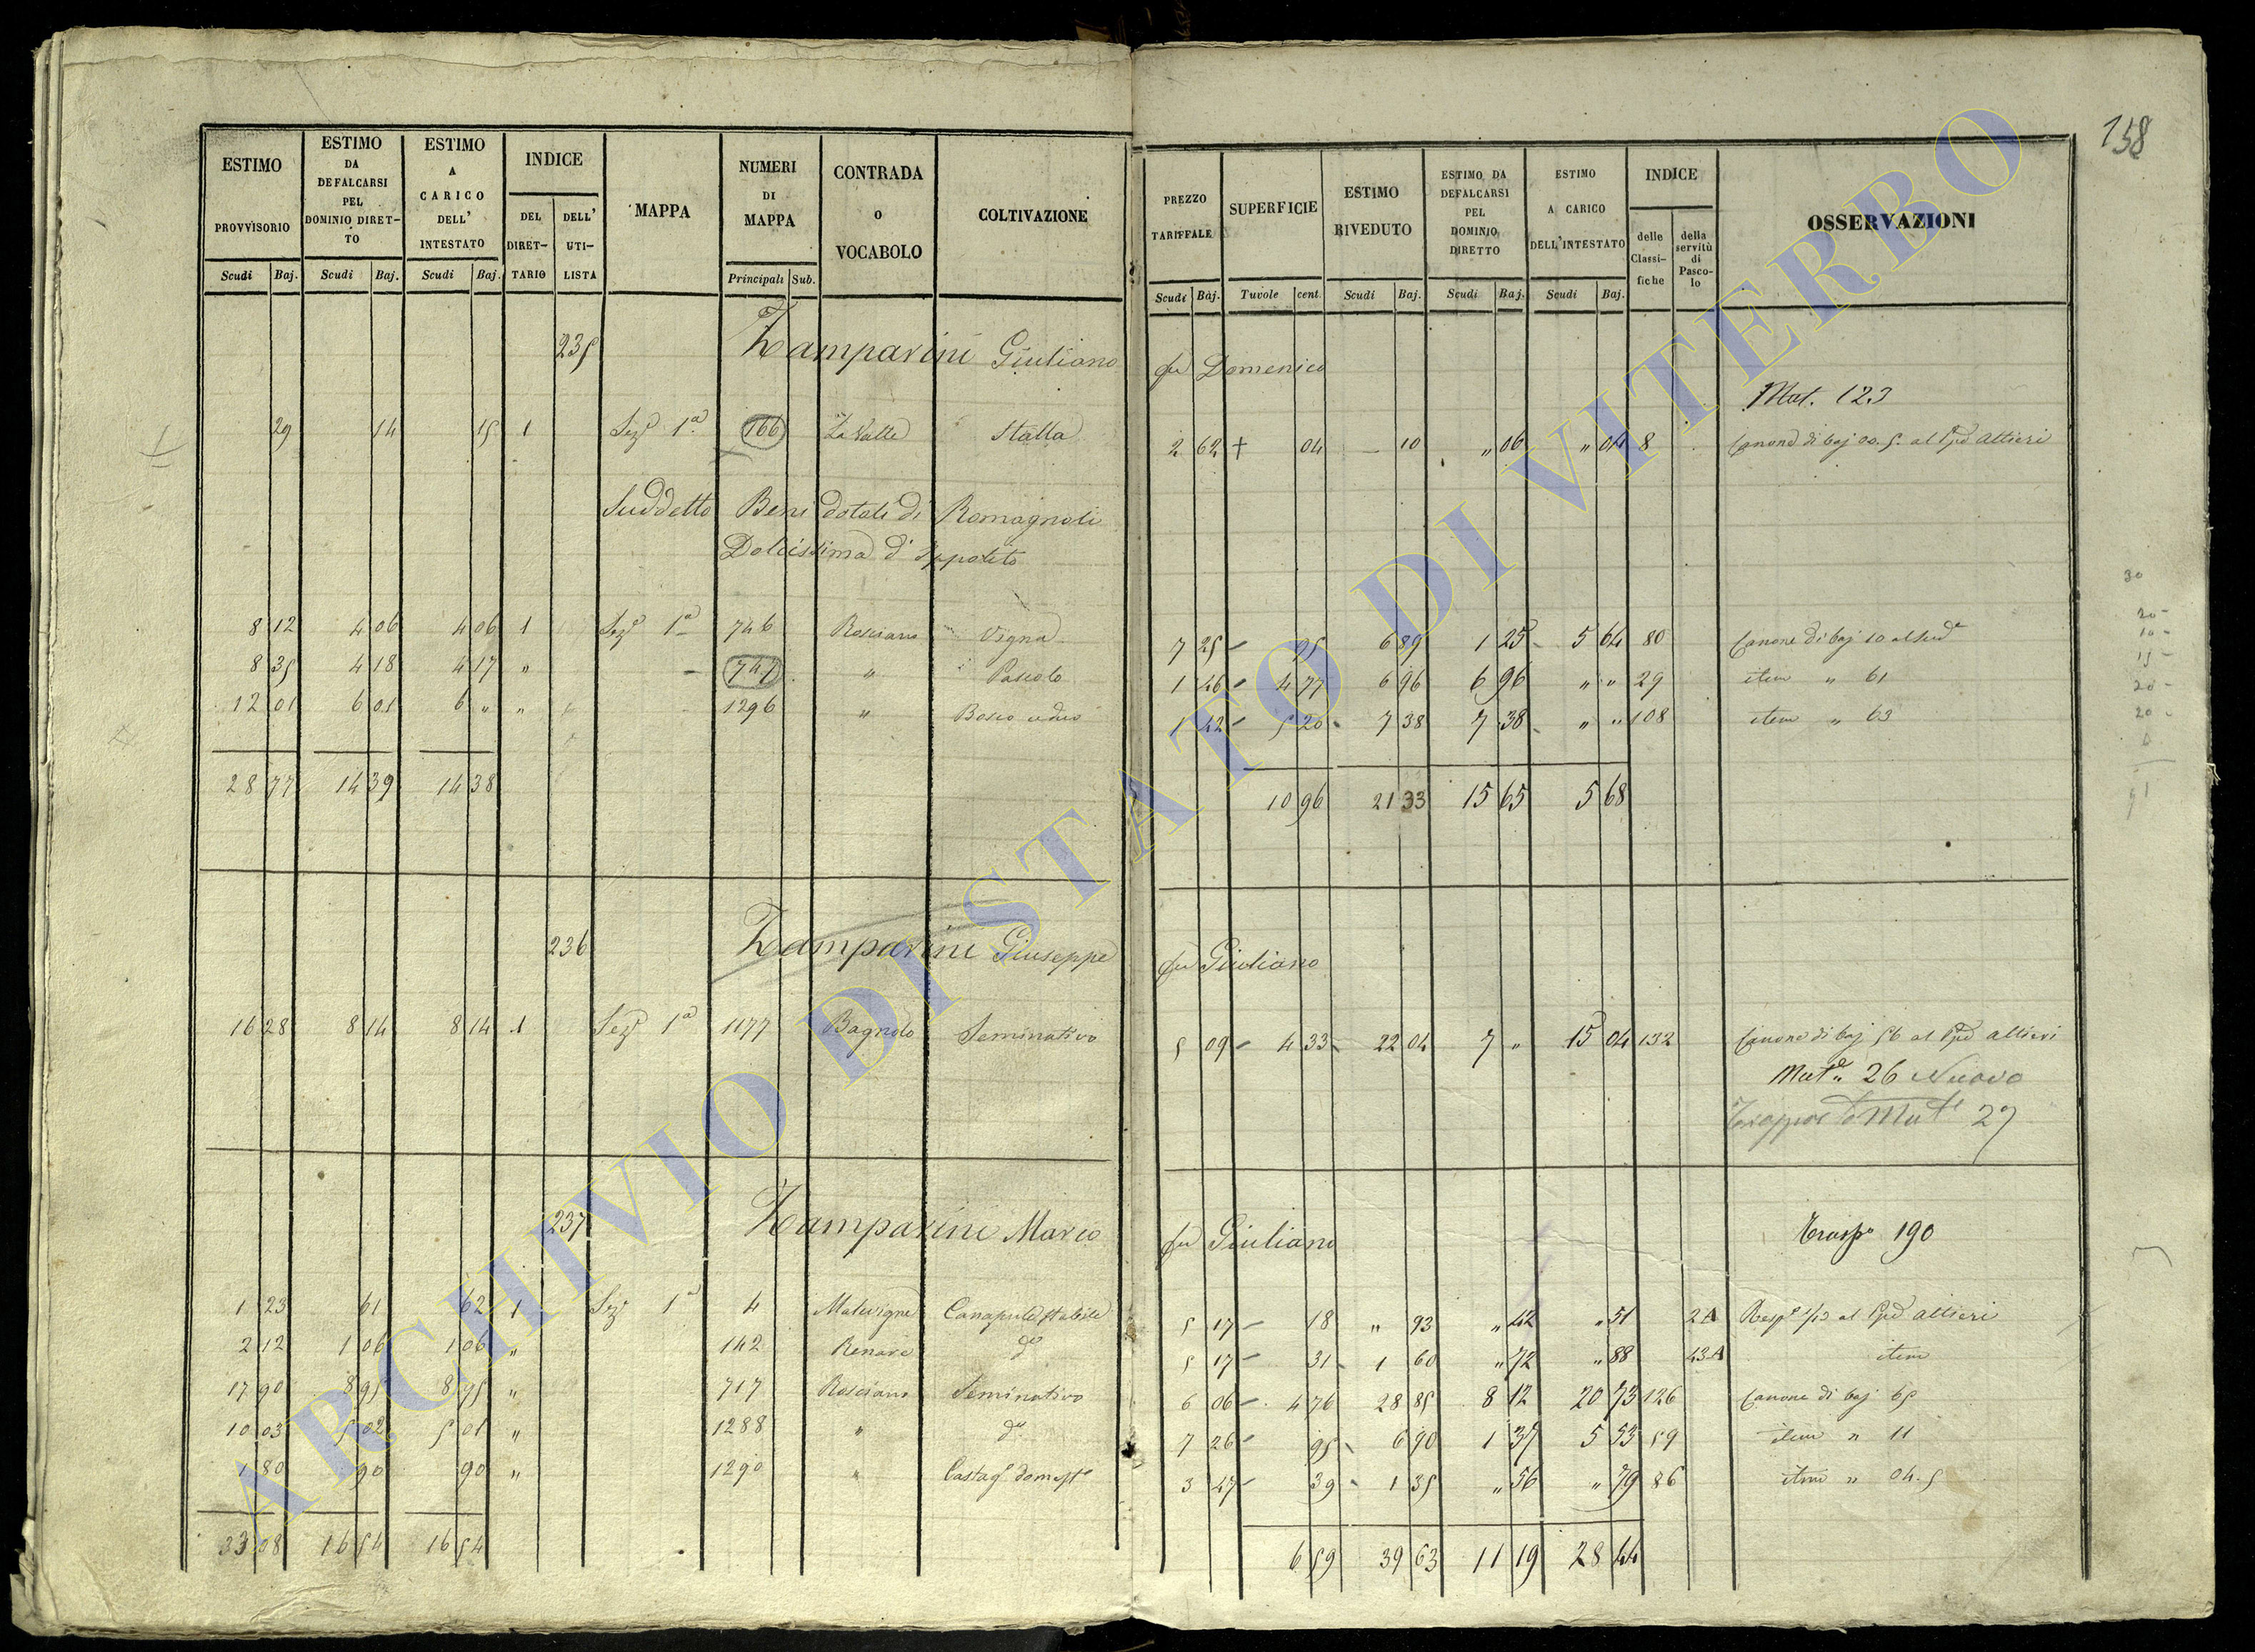 158
ESTIMO PROVVISORIO Scudi Baj.
ESTIMO DA DEFALCARSI PEL DOMINIO DIRETTO Scudi Baj.
ESTIMO A CARICO DELL' INTESTATO Scudi Baj.
INDICE DEL DIRETTARIO DELL' UTILISTA
MAPPA
NUMERI DI MAPPA Principali Sub.
CONTRADA O VOCABOLO
COLTIVAZIONE
PREZZO TARIFFALE Scudi Baj.
SUPERFICIE Tavole cent.
ESTIMO RIVEDUTO Scudi Baj.
ESTIMO DA DEFALCARSI PEL DOMINIO DIRETTO Scudi Baj.
ESTIMO A CARICO DELL'INTESTATO Scudi Baj.
INDICE delle Classifiche della servitù di Pascolo
OSSERVAZIONI
235 Zamparini Giuliano fu Domenico
Mat. 123
29 14 15 1 Sez.e 1a 166 La Valle Stalla 2 62 + 04 10 " 06 " 04 8 Canone di baj 00.5. al Ppe Altieri
Suddetto Beni dotali di Romagnoli
Dolcissima d'Ippolito
8 12 4 06 4 06 1 Sez.e 1a 746 Rosciano Vigna 7 25 95 6 89 1 25 5 64 80 Canone di baj 10 al sude
8 35 4 18 4 17 " 747 " Pascolo 1 46 4 77 6 96 6 96 " " 29 item " 61
12 01 6 01 6 " " 1296 " Bosco ceduo 1 42 5 20 7 38 7 38 " " 108 item " 63
28 77 14 39 14 38 10 96 21 33 15 65 5 68
236 Zamparini Giuseppe fu Giuliano
16 28 8 14 8 14 1 Sez.e 1a 1177 Bagnolo Seminativo 5 09 4 33 22 04 7 " 15 04 132 Canone di baj 56 al Ppe Altieri
Mute 26 Nuovo
Mute 27
237 Zamparini Marco fu Giuliano
Trasp 190
1 23 61 62 1 Sez.e 1a 4 Malevigne Canapule stabile 5 17 18 " 93 " 42 " 51 2A Respe 1/12 al Ppe Altieri
2 12 1 06 1 06 " 142 Renare do 5 17 31 1 60 " 72 " 88 43A item
17 90 8 95 8 95 " 717 Rosciano Seminativo 6 06 4 76 28 85 8 12 20 73 126 Canone di baj 65
10 03 5 02 5 01 " 1288 " do 7 26 95 6 90 1 37 5 53 59 item " 11
1 80 90 90 " 1290 " Castag.e domeste 3 47 39 1 35 " 56 " 79 86 item " 04.5
33 08 16 54 16 54 6 59 39 63 11 19 28 44
ARCHIVIO DI STATO DI VITERBO